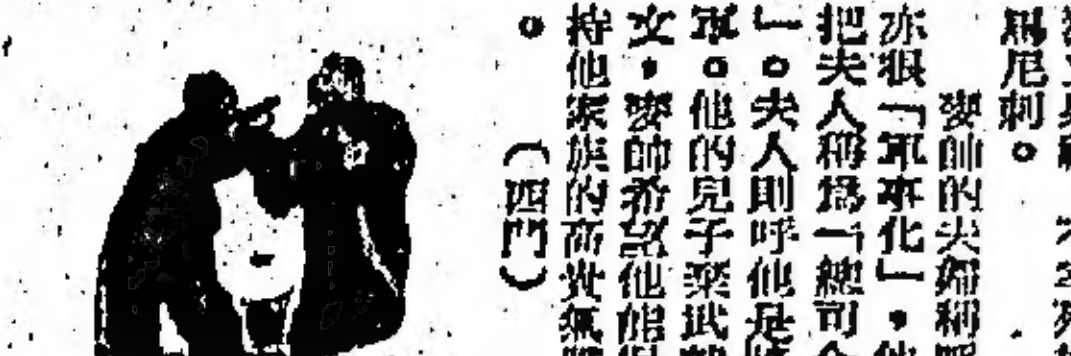 馬尼刺。
麥帥的夫婦稱呼
亦很「軍事化」,他
把夫人稱爲「總司令
」。夫人則呼他是
軍。他的兒子棄武就
文,麥帥希望他能保
持他家族的高貴氣
。(四門)